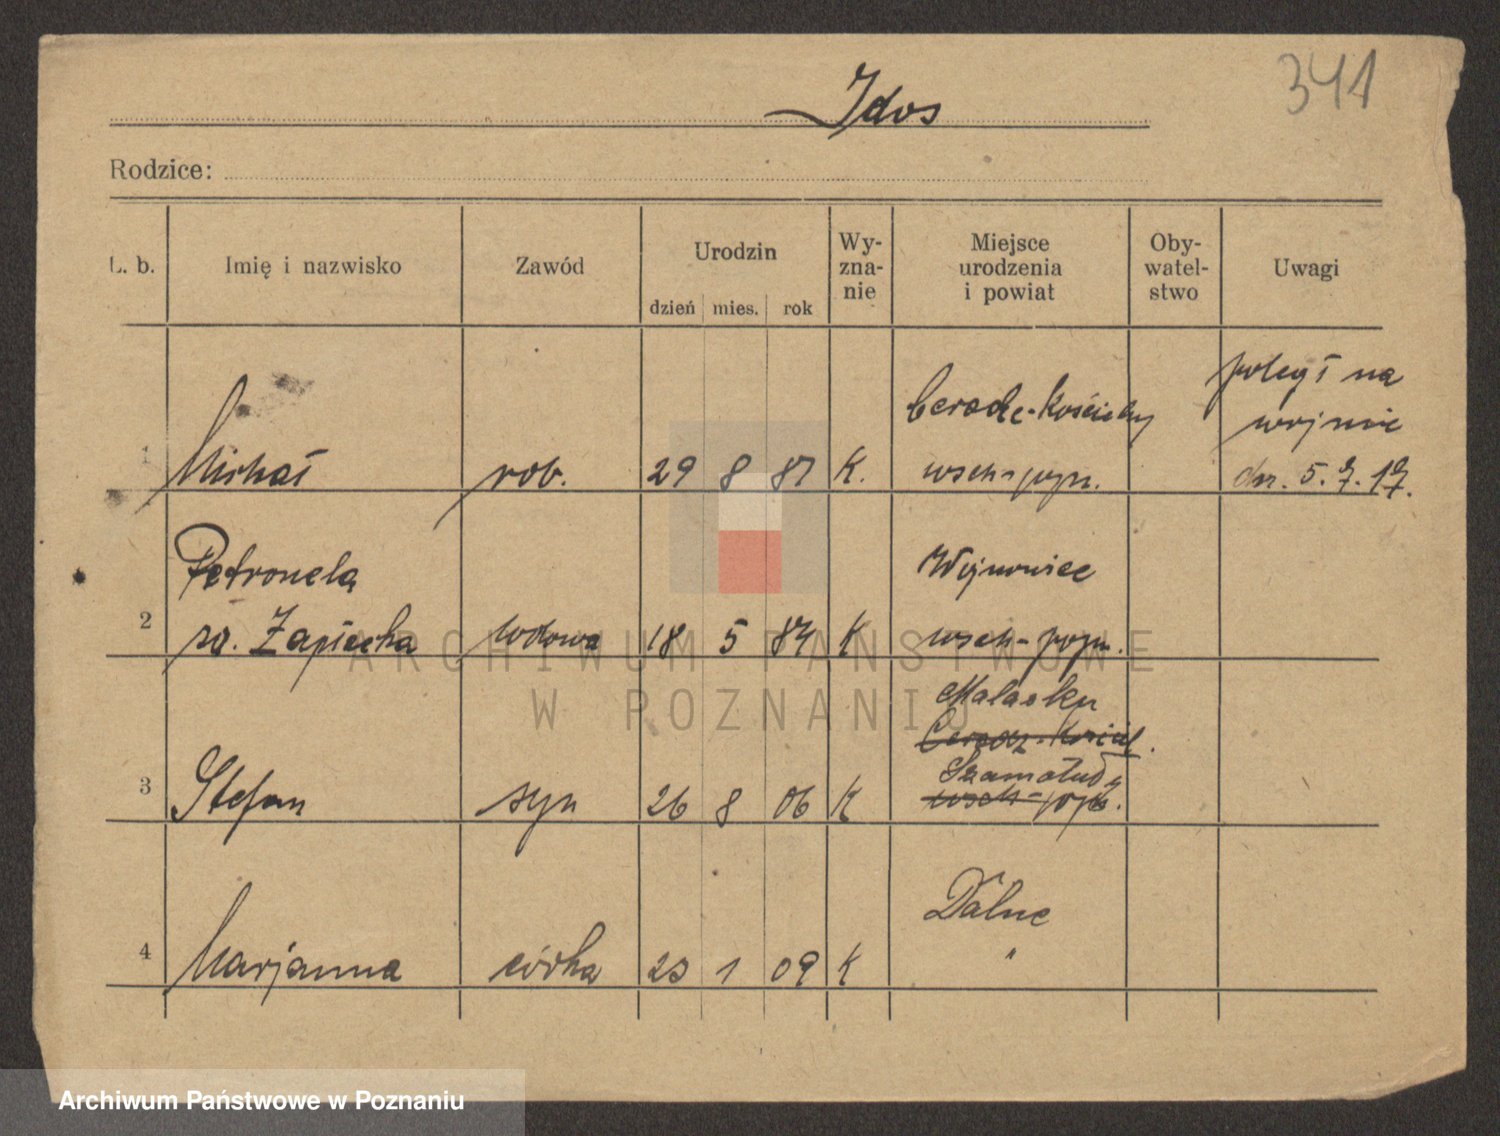 341
Idos
Rodzice:
L. b.
Imię i nazwisko
Zawód
Urodzin
dzień mies. rok
Wy-
zna-
nie
Miejsce
urodzenia
i powiat
Oby-
watel-
stwo
Uwagi
1 Michał rob. 29 8 87 K. Ceradz-Kościelny
wsch-pozn.
poległ na
wojnie
dn. 5.7.17.
Petronela
2 ro. Zapiecha wdowa 18 5 84 K Wojnowice
wsch-pozn.
3 Stefan syn 26 8 06 K
Ceradz-Kościel.
Szamotuły
wsch-pozn.
4 Marjanna córka 23 1 09 K
"
ARCHIWUM PAŃSTWOWE
W POZNANIU
Archiwum Państwowe w Poznaniu